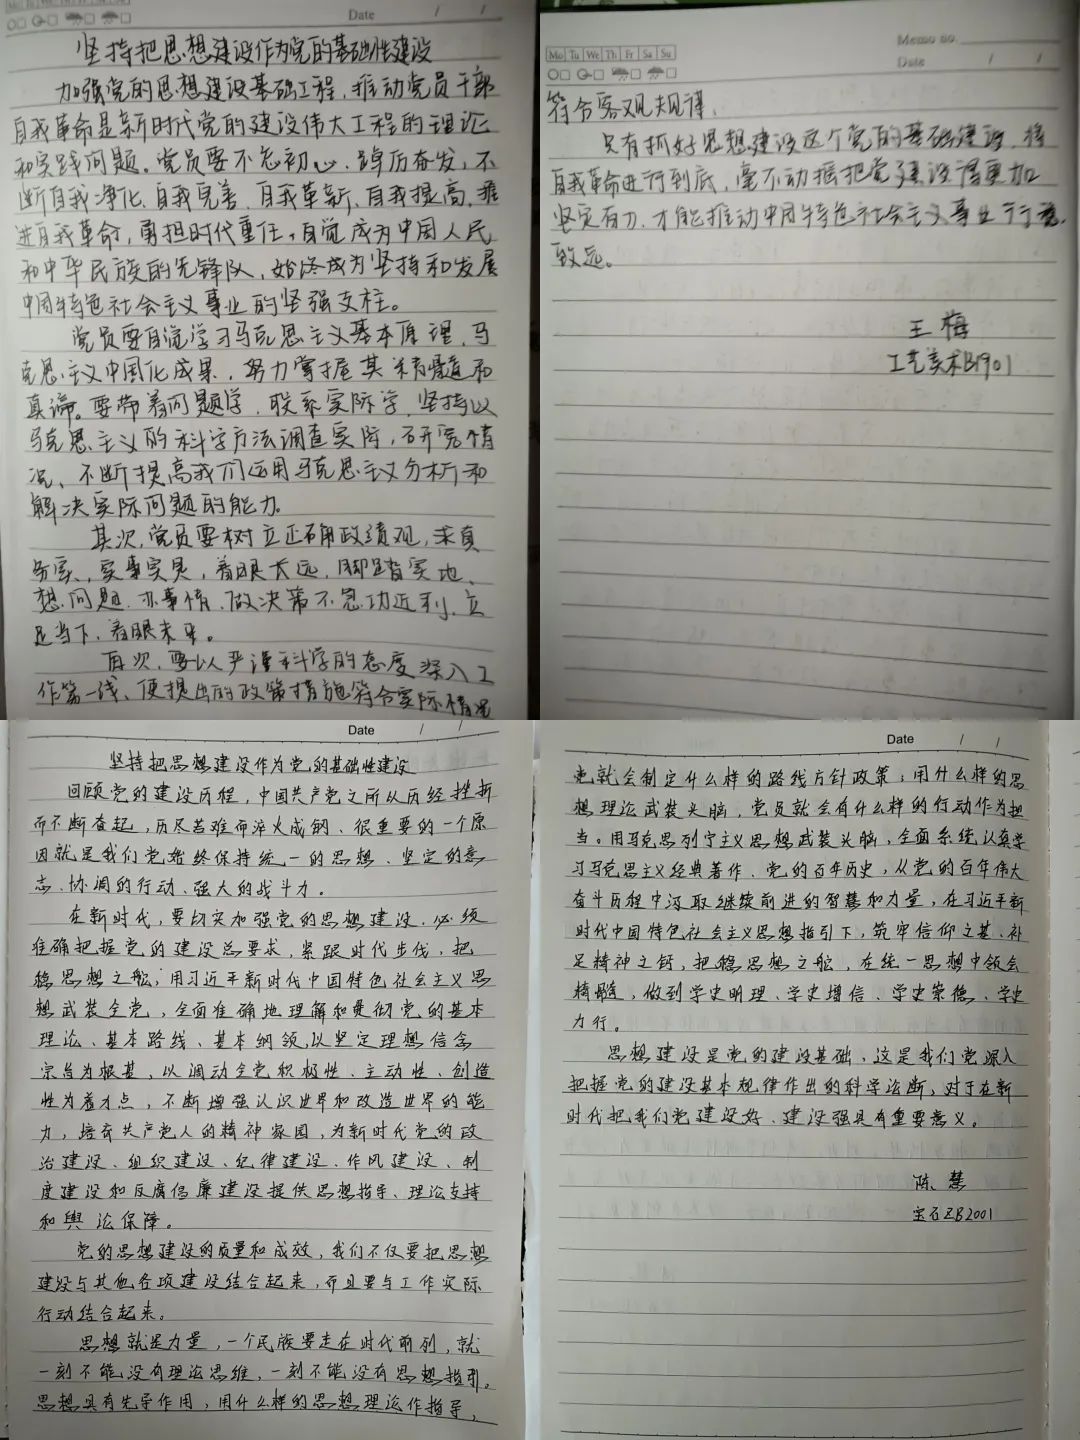 Mo Tu We Th Fr Sa Su
Date / /
坚持把思想建设作为党的基础性建设
加强党的思想建设基础工程,推动党员干部
自我革命是新时代党的建设伟大工程的理论
和实践问题。党员要不忘初心、踔厉奋发,不
断自我净化、自我完善、自我革新、自我提高,推
进自我革命,勇担时代重任,自觉成为中国人民
和中华民族的先锋队,始终成为坚持和发展
中国特色社会主义事业的坚强支柱。
党员要自觉学习马克思主义基本原理,马
克思主义中国化成果,努力掌握其精髓道和
真谛。要带着问题学,联系实际学,坚持以
马克思主义的科学方法调查实际,研究情
况、不断提高我们运用马克思主义分析和
解决实际问题的能力。
其次,党员要树立正确政绩观,求真
务实,实事实是,着眼长远,脚踏实地、
想问题、办事情、做决策不急功近利、立
足当下、着眼未来。
再次,要以严谨科学的态度深入工
作第一线、使提出的政策措施符合实际情况
Memo no.
Mo Tu We Th Fr Sa Su
Date / /
符合客观规律.
只有抓好思想建设这个党的基础建设,将
自我革命进行到底,毫不动摇把党建设得更加
坚定有力,才能推动中国特色社会主义事业行稳
致远。
王梅
工艺美术B1901
Date / /
坚持把思想建设作为党的基础性建设
回顾党的建设历程,中国共产党之所从历经挫折
而不断奋起,历尽苦难而淬火成钢、很重要的一个原
因就是我们党始终保持统一的思想、坚定的意
志、协调的行动、强大的战斗力。
在新时代,要切实加强党的思想建设、必须
准确把握党的建设总要求,紧跟时代步伐,把
稳思想之舵;用习近平新时代中国特色社会主义思
想武装全党,全面准确地理解和贯彻党的基本
理论、基本路线、基本纲领,以坚定理想信念
宗旨为根基,以调动全党积极性、主动性、创造
性为着力点,不断增强认识世界和改造世界的能
力,培育共产党人的精神家园,为新时代党的政
治建设、组织建设、纪律建设、作风建设、制
度建设和反腐倡廉建设提供思想指导、理论支持
和舆论保障。
党的思想建设的质量和成效,我们不仅要把思想
建设与其他各项建设结合起来,而且要与工作实际
行动结合起来。
思想就是力量,一个民族要走在时代前列,就
一刻不能没有理论思维,一刻不能没有思想指引。
思想具有先导作用,用什么样的思想理论作指导,
Date / /
党就会制定什么样的路线方针政策;用什么样的思
想理论武装头脑,党员就会有什么样的行动作为担
当。用马克思列宁主义思想武装头脑,全面系统认真学
习马克思主义经典著作、党的百年历史,从党的百年伟大
奋斗历程中汲取继续前进的智慧和力量,在习近平新
时代中国特色社会主义思想指引下,筑牢信仰之基、补
足精神之钙,把稳思想之舵,在统一思想中领会
精髓,做到学史明理、学史增信、学史崇德、学史
力行。
思想建设是党的建设基础、这是我们党深入
把握党的建设基本规律作出的科学论断,对于在新
时代把我们党建设好、建设强具有重要意义。
陈慧
宝石ZB2001